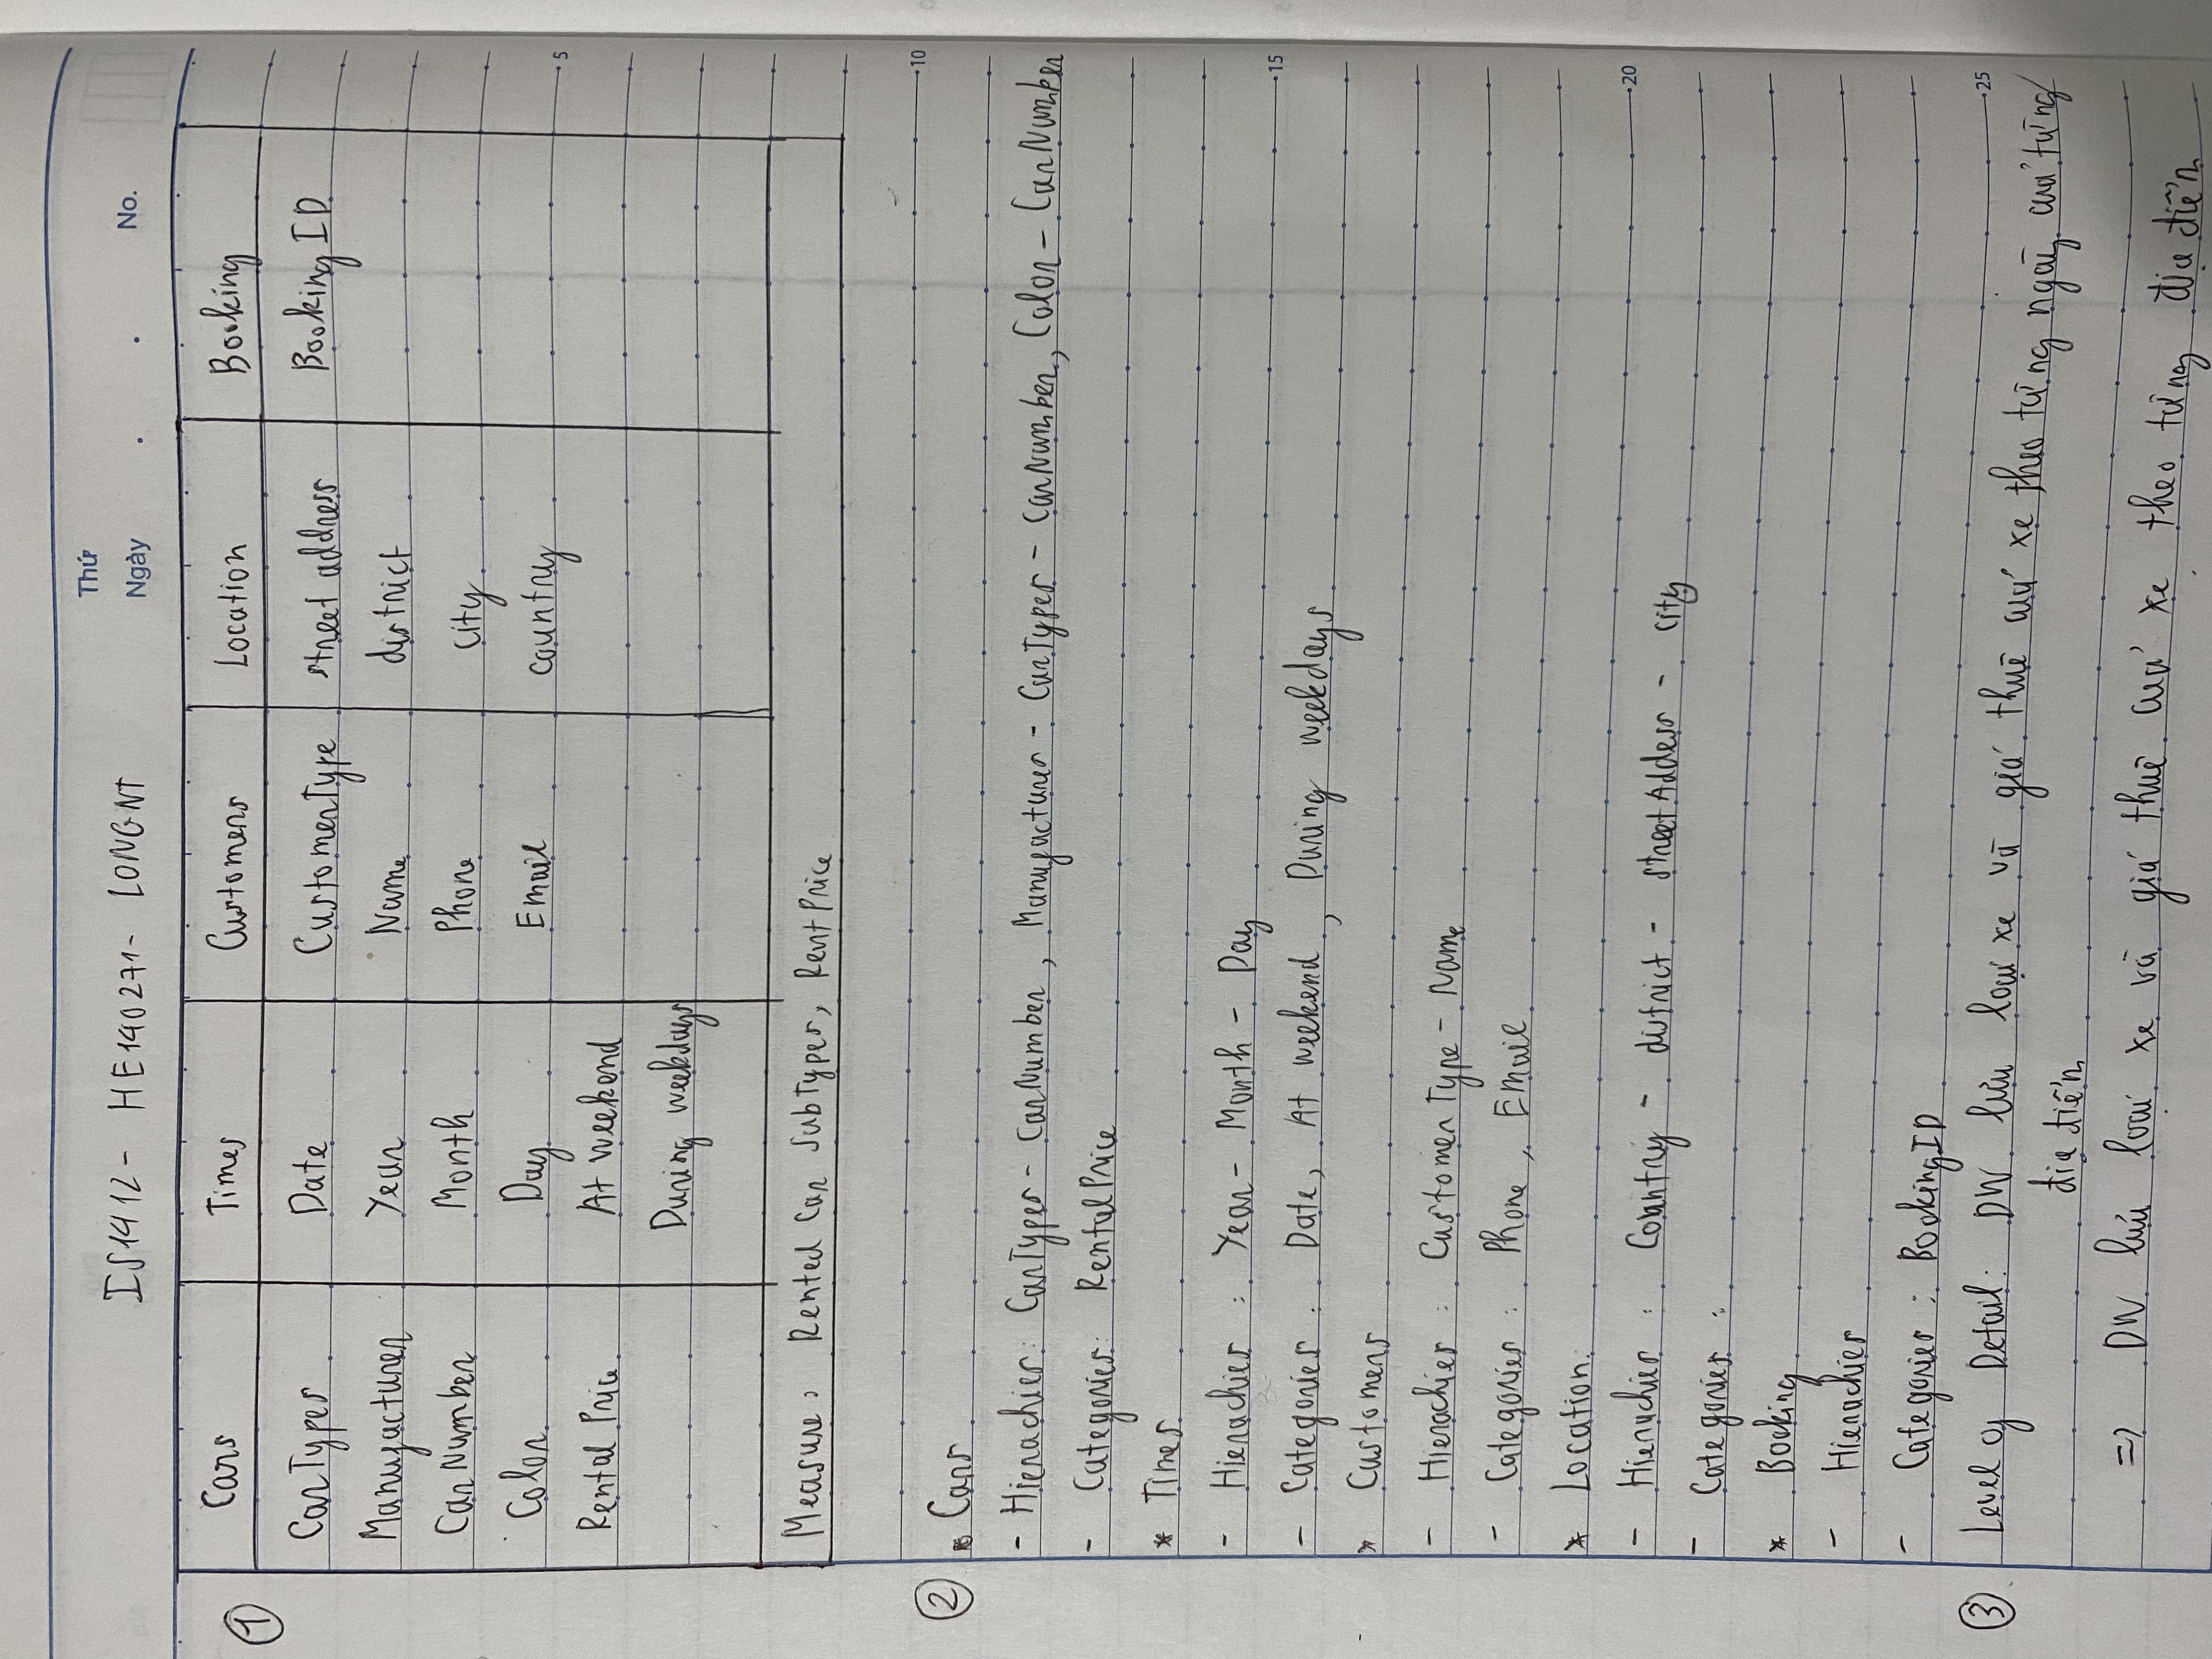 Thứ
IS1412 - HE140271 - LONGNT
Ngày . . No.
① Cars Times Customers Location Booking
CarTypes Date CustomerType street address BookingID
Manufacturer Year Name district
CarNumber Month Phone city
Color Day Email country
5
Rental Price At weekend
During weekdays
Measure: Rented Car SubTypes, RentPrice
10
② * Cars
- Hierachies: CarTypes - CarNumber, Manufacturer - CarTypes - CarNumber, Color - CarNumber
- Categories: RentalPrice
* Times
- Hierachies: Year - Month - Day
15
- Categories: Date, At weekend, During weekdays
* Customers
- Hierachies: CustomerType - Name
- Categories: Phone, Email
* Location
- Hierachies: Country - district - streetAddess - city
20
- Categories:
* Booking
- Hierachies
- Categories: BookingID
25
③ Level of Detail: DW lưu loại xe và giá thuê của xe theo từng ngày của từng
địa điểm
=> DW lưu loại xe và giá thuê của xe theo từng địa điểm